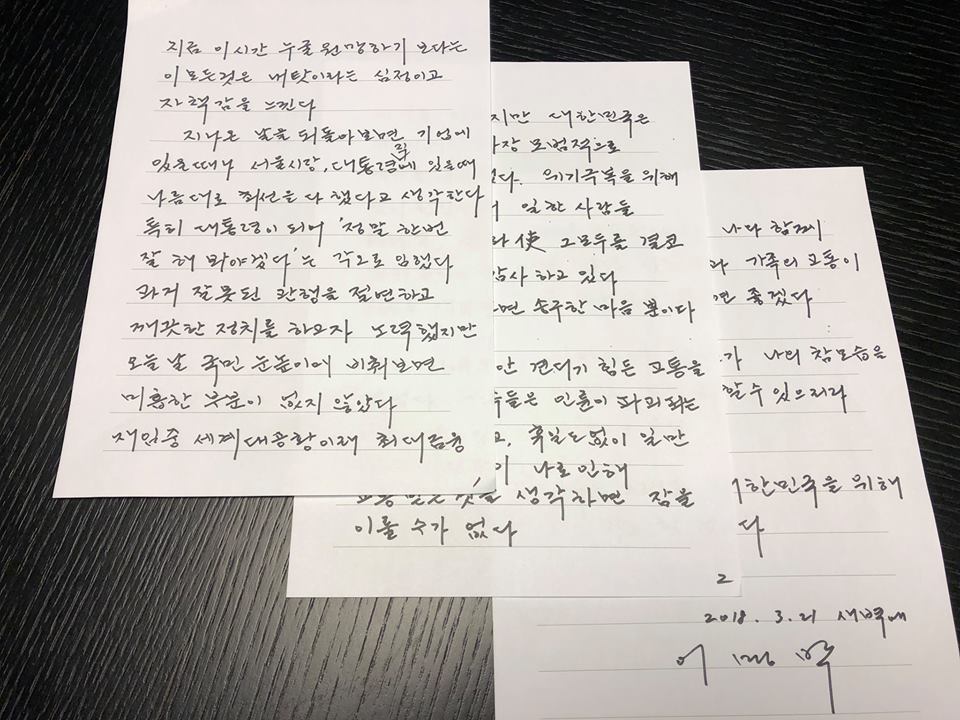 지금 이 시간 누굴 원망하기 보다는
이 모든것은 내탓이라는 심정이고
자책감을 느낀다
지나온 날을 되돌아보면 기업에
있을때나 서울시장, 대통령직에 있을때
나름대로 최선을 다 했다고 생각한다
특히 대통령이 되어 '정말 한번
잘 해 봐야겠다'는 각오로 임했다
과거 잘못된 관행을 절연하고
깨끗한 정치를 하고자 노력했지만
오늘날 국민 눈높이에 비춰보면
미흡한 부분이 없지 않았다
재임중 세계대공황이래 최대금융
지만 대한민국은
가장 모범적으로
했다. 위기극복을 위해
일한 사람들
使 그모두를 결코
감사 하고 있다
면 송구한 마음 뿐이다
안 견디기 힘든 고통을
들은 인륜이 파괴되는
고, 휴일도 없이 일만
이 나로 인해
고통받는 것을 생각하면 잠을
이룰 수가 없다
2
나와 함께
과 가족의 고통이
면 좋겠다
가 나의 참모습을
할 수 있으리라
대한민국을 위해
다
2018. 3. 21 새벽에
이명박